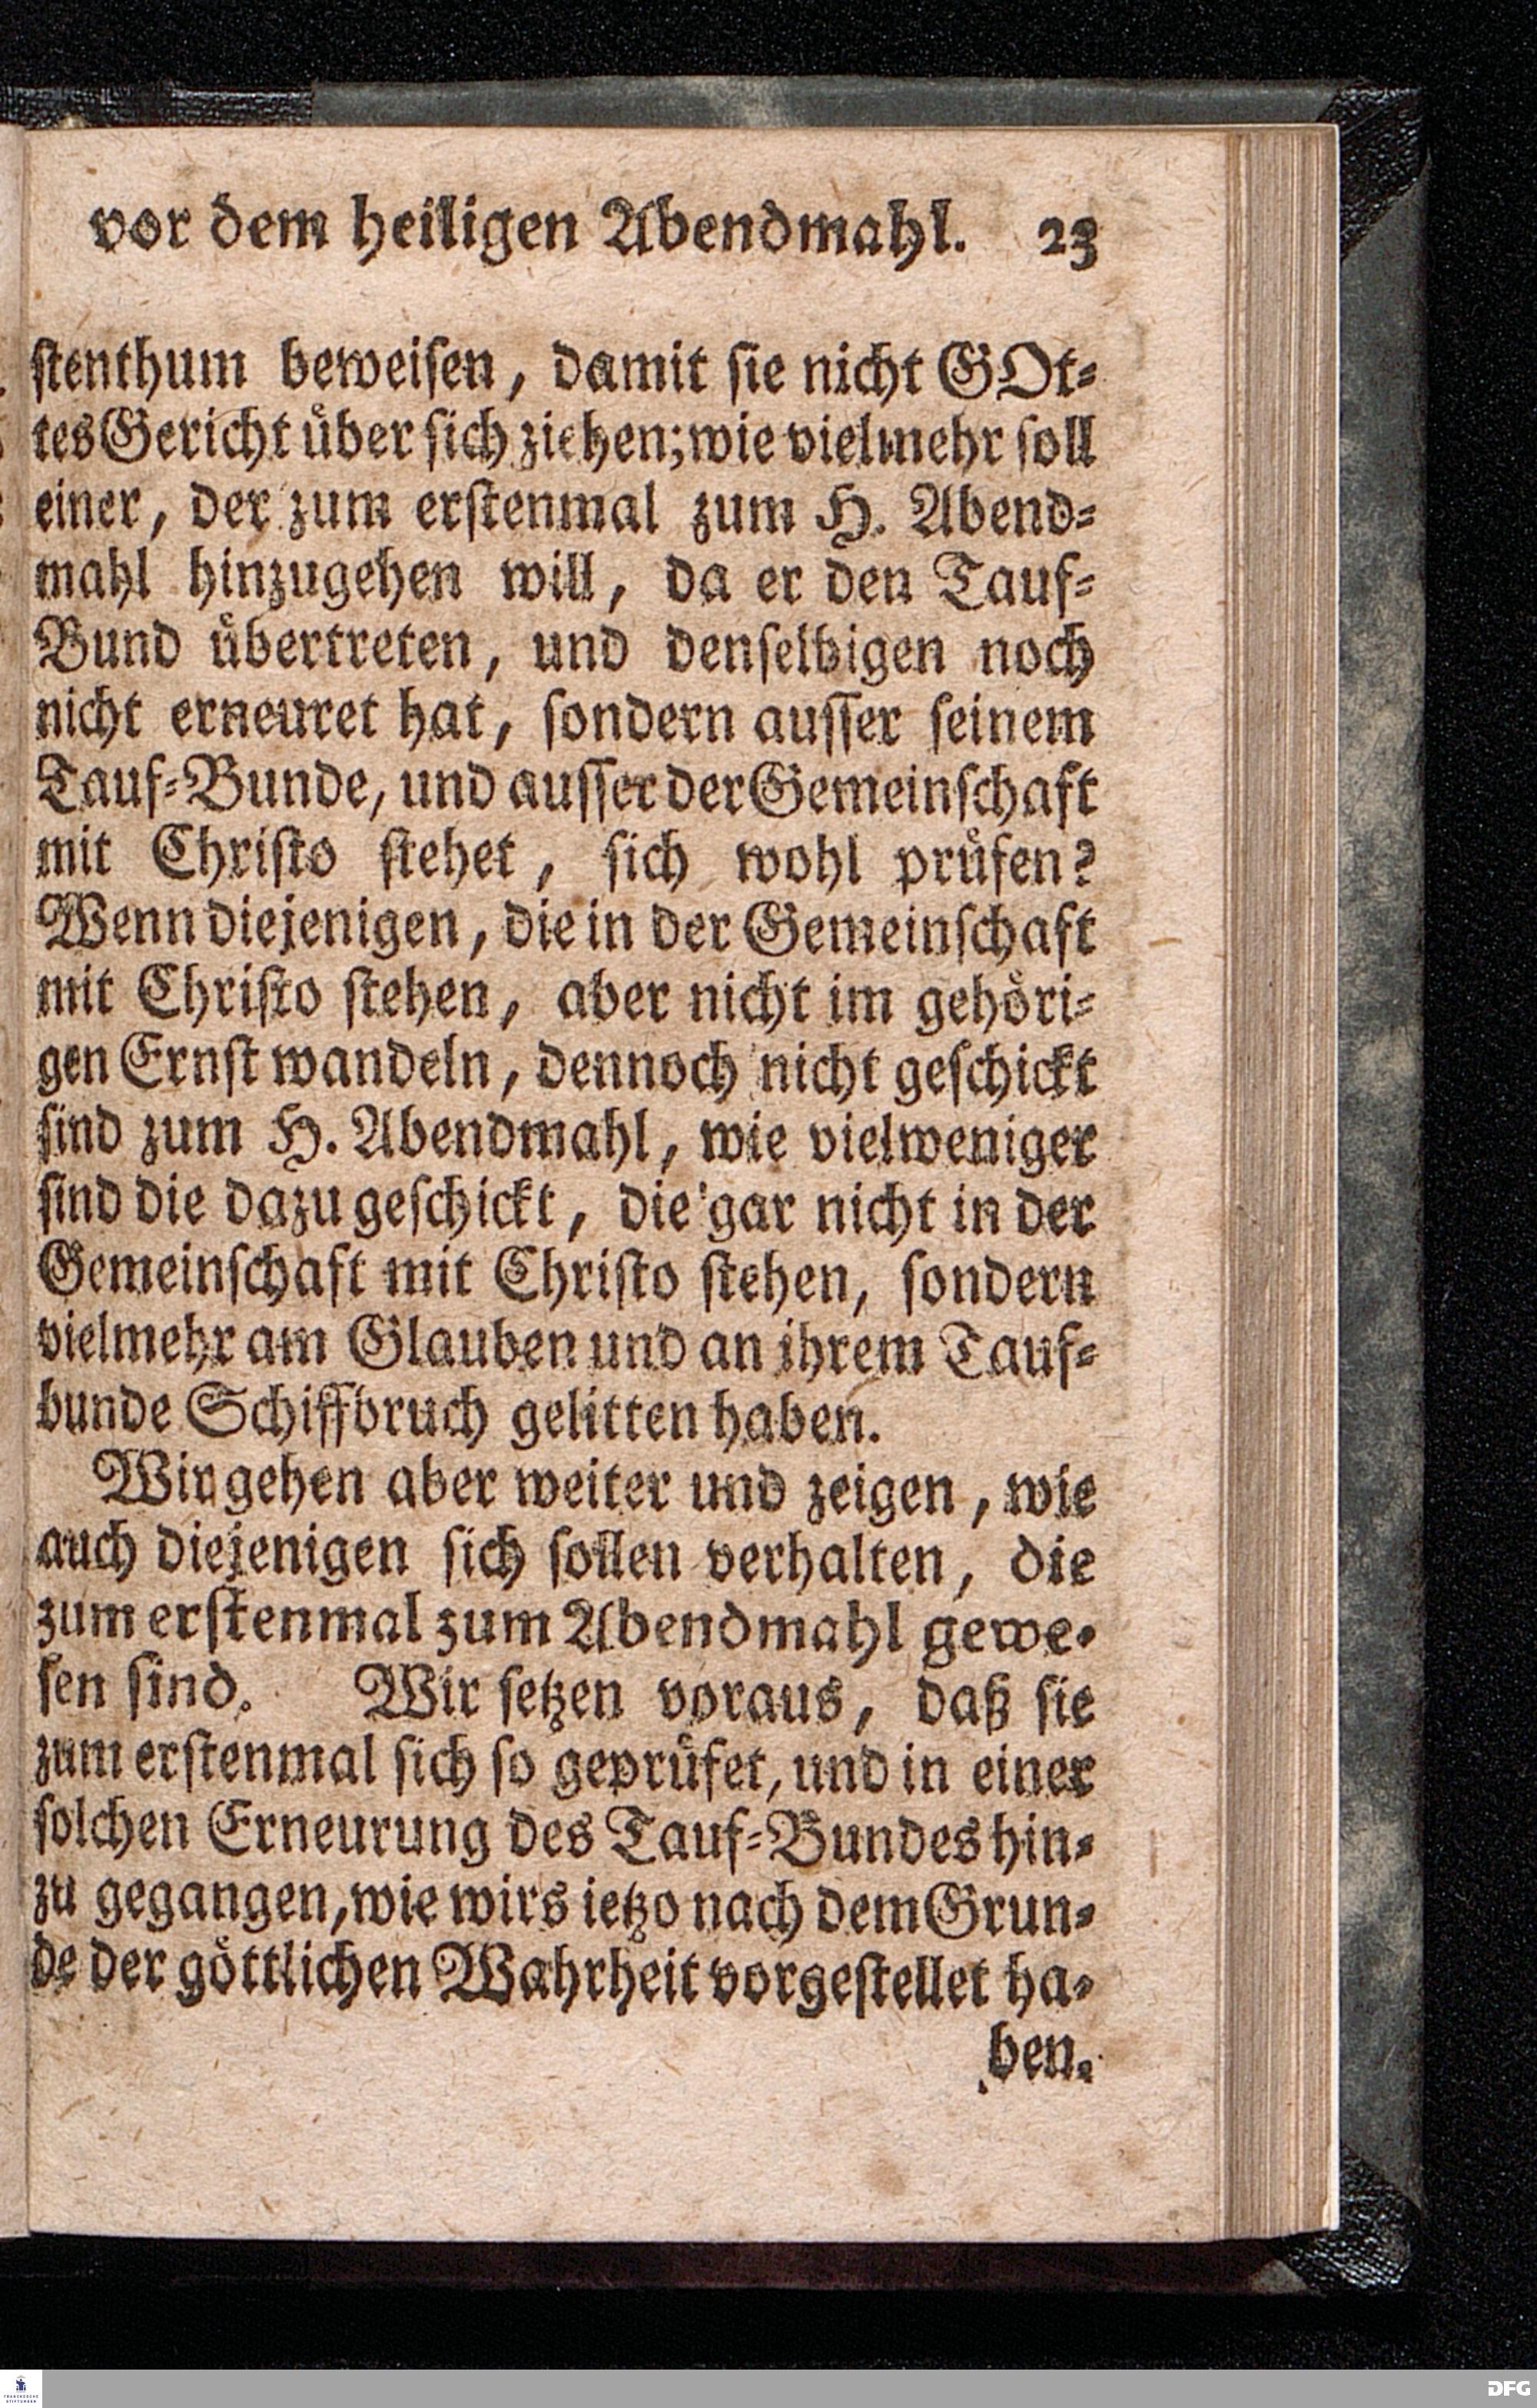 vor dem heiligen Abendmahl. 23
stenthum beweisen, damit sie nicht GOt-
tes Gericht über sich ziehen; wie vielmehr soll
einer, der zum erstenmal zum H. Abend-
mahl hinzugehen will, da er den Tauf-
Bund übertreten, und denselbigen noch
nicht erneuret hat, sondern ausser seinem
Tauf-Bunde, und ausser der Gemeinschaft
mit Christo stehet, sich wohl prüfen?
Wenn diejenigen, die in der Gemeinschaft
mit Christo stehen, aber nicht im gehöri-
gen Ernst wandeln, dennoch nicht geschickt
sind zum H. Abendmahl, wie vielweniger
sind die dazu geschickt, die gar nicht in der
Gemeinschaft mit Christo stehen, sondern
vielmehr am Glauben und an ihrem Tauf-
bunde Schiffbruch gelitten haben.
Wir gehen aber weiter und zeigen, wie
auch diejenigen sich sollen verhalten, die
zum erstenmal zum Abendmahl gewe-
sen sind. Wir setzen voraus, daß sie
zum erstenmal sich so geprüfet, und in einer
solchen Erneurung des Tauf-Bundes hin-
zu gegangen, wie wirs ietzo nach dem Grun-
de der göttlichen Wahrheit vorgestellet ha-
ben.
DFG